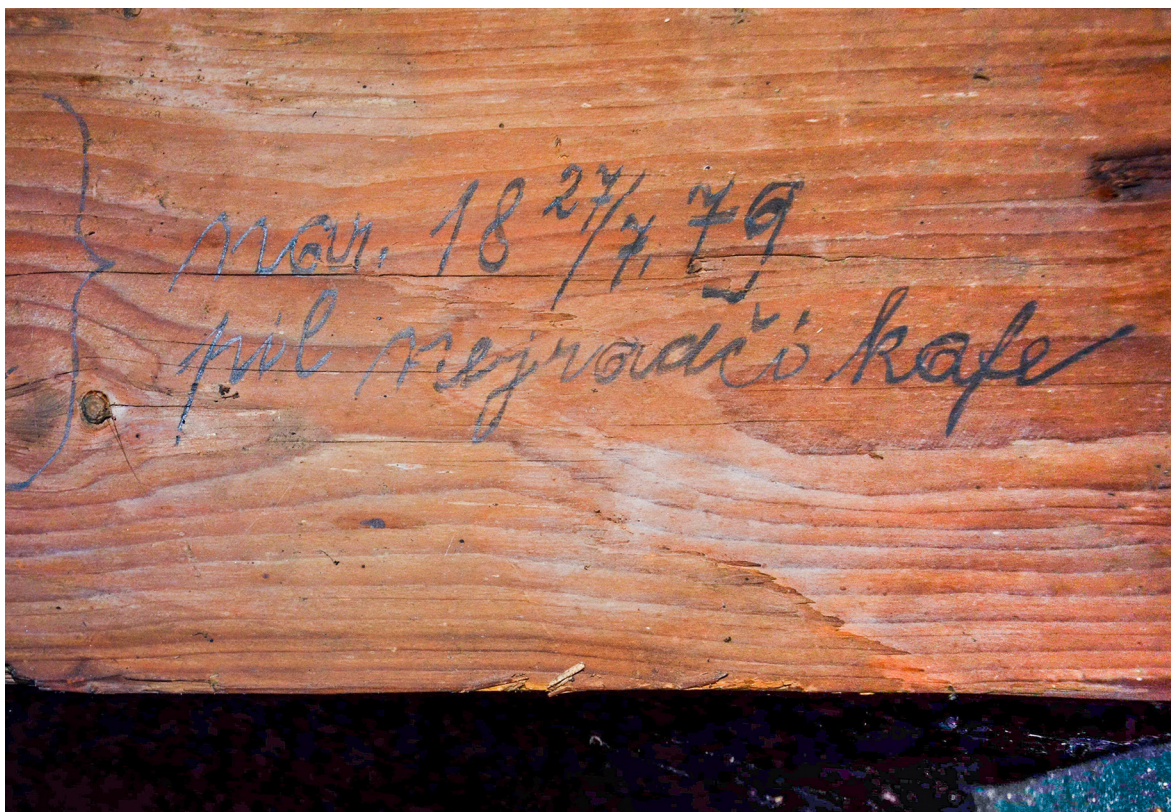 nar. 18 27/7. 79
pil nejradči kafe